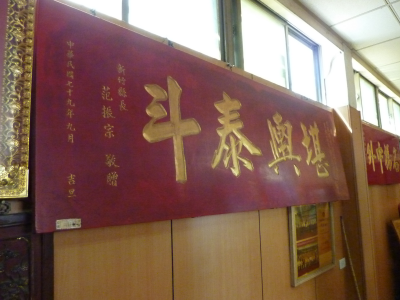 堪輿泰斗
新竹縣長
范振宗 敬贈
中華民國七十九年九月 吉旦